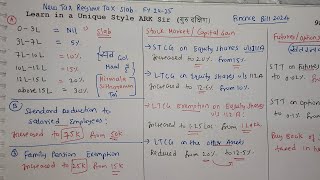 New Tax Regime Tax Slab. FY 24-25
Learn in a Unique Style ARK Sir (गुरु दक्षिणा)
Finance Bill 2024
0-3L = Nil
Slab
3L-7L = 5%
7L-10L = 10%
10L-12L = 15%
12L-15L = 20%
above 15L = 30%
Old
Nirmala
Sitharaman
② Standard Deduction to
Salaried Employees:
Increased to 75K from 50K
③ Family Pension Exemption
Increased to 25K from 15K
Stock Market / Capital Gain
STCG on Equity shares u/s 111A
Increased to 20% from 15%
LTCG on Equity u/s 112A
Increased to 12.5% from 10%
LTCG Exemption on Equity Shares
u/s 112A
Increased to 1.25 Lac from 1 Lacs
LTCG on the other Assets
Reduced from 20% to 12.5%
STT on Futures
STT on
Buy Back of
taxed in